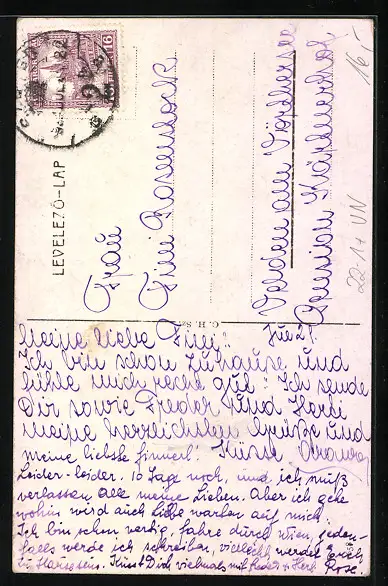 LEVELEZŐ-LAP
Frau
Fini Rosenstock
Velden am Wörthersee
Pension Kärntnerhof
16,-
22-17 VN
C. H. S
Meine liebe Finy!
Ich bin schon zuhause und
fühle mich recht gut! Ich sende
Dir sowie Fredor und Herti
meine herzlichsten Grüße und
meine liebste finnerl. Küsse
Leider-leider. 10 Tage noch, und ich muß
verlassen alle meine Lieben. Aber ich gehe
wohin wird auch liebe warten auf mich.
Ich bin schon vertig, fahre durch Wien, jeden-
falls werde ich schreiben, vielleicht werdet
zu Hause sein. Küsst Dich vielmals mit Rose.